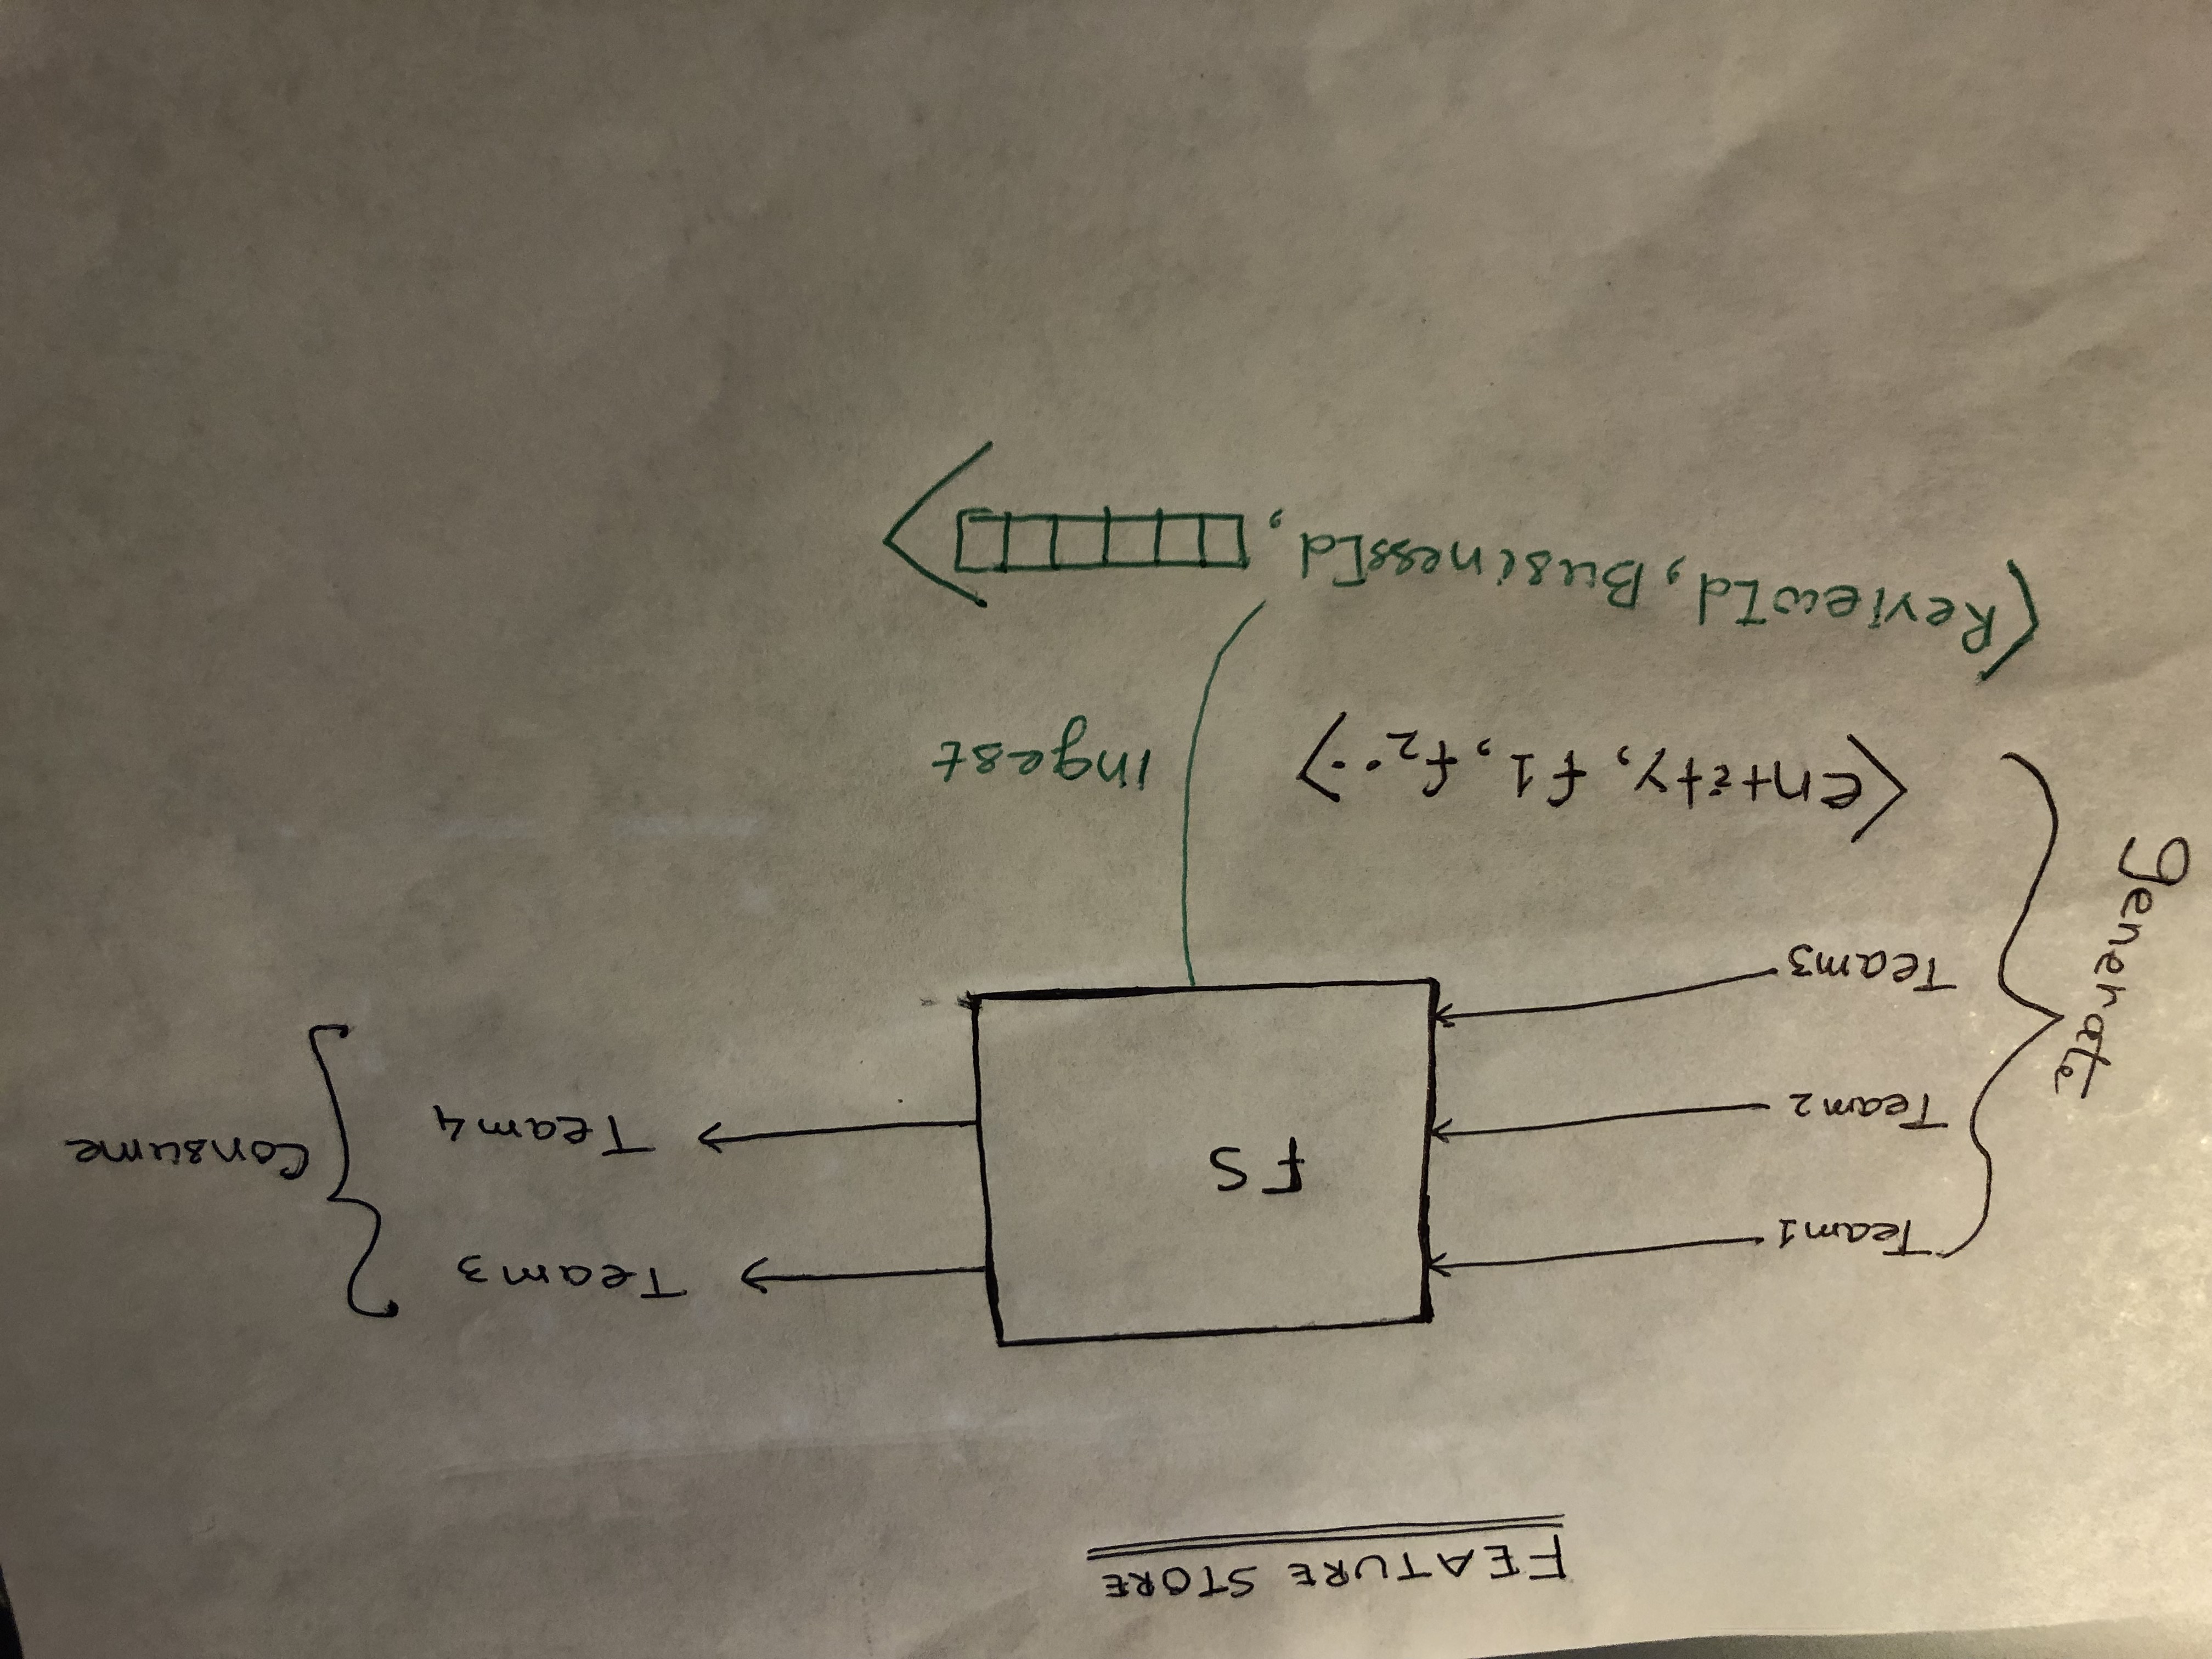 FEATURE STORE
Team1
Team2
Team3
generate
FS
Team3
Team4
Consume
<entity, f1, f2..>
Ingest
<ReviewId, BusinessId, >